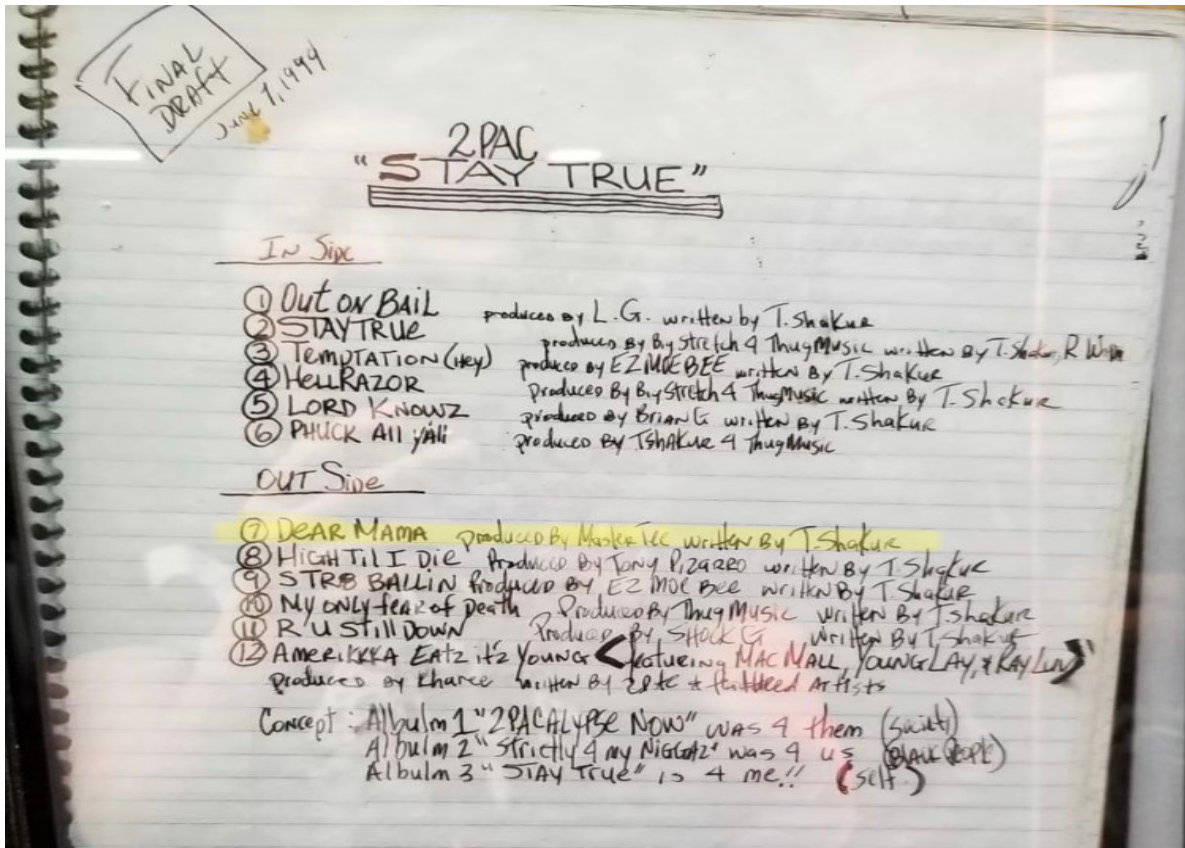 FINAL
DRAFT
JUNE 7, 1994
2PAC
"STAY TRUE"
IN SIDE
① OUT ON BAIL produced by L.G. written by T. Shakur
② STAY TRUE produced By Big Stretch 4 Thug Music written By T. Shakur, R
③ TEMPTATION (Hey) produced by EZ MOE BEE written By T. Shakur
④ HELLRAZOR Produced By Big Stretch 4 ThugMusic written By T. Shakur
⑤ LORD KNOWZ produced By BRIAN G written By T. Shakur
⑥ PHUCK All y'all produced By TShakur 4 ThugMusic
OUT SIDE
⑦ DEAR MAMA produced By Master Tec written By T. Shakur
⑧ HIGH TIL I DIE Produced By Tony Pizarro written By T. Shakur
⑨ STR8 BALLIN Produced By EZ MOE Bee written By T. Shakur
⑩ My ONLY fear of Death Produced By Thug Music written By T. Shakur
⑪ R U Still Down Produced By, SHOCK G written By T. Shakur
⑫ AMERIKKKA EAtz it'z YOUNG < featuring MAC MALL, YOUNG LAY, & RAY LUV >
produced by Kharee written By 2pac & Artists
Concept: Albulm 1 "2PACALYPSE NOW" was 4 them
Albulm 2 "Strictly 4 my NIGGAZ" was 4 us (BLACK PEOPLE)
Albulm 3 "STAY True" is 4 me!! (self)